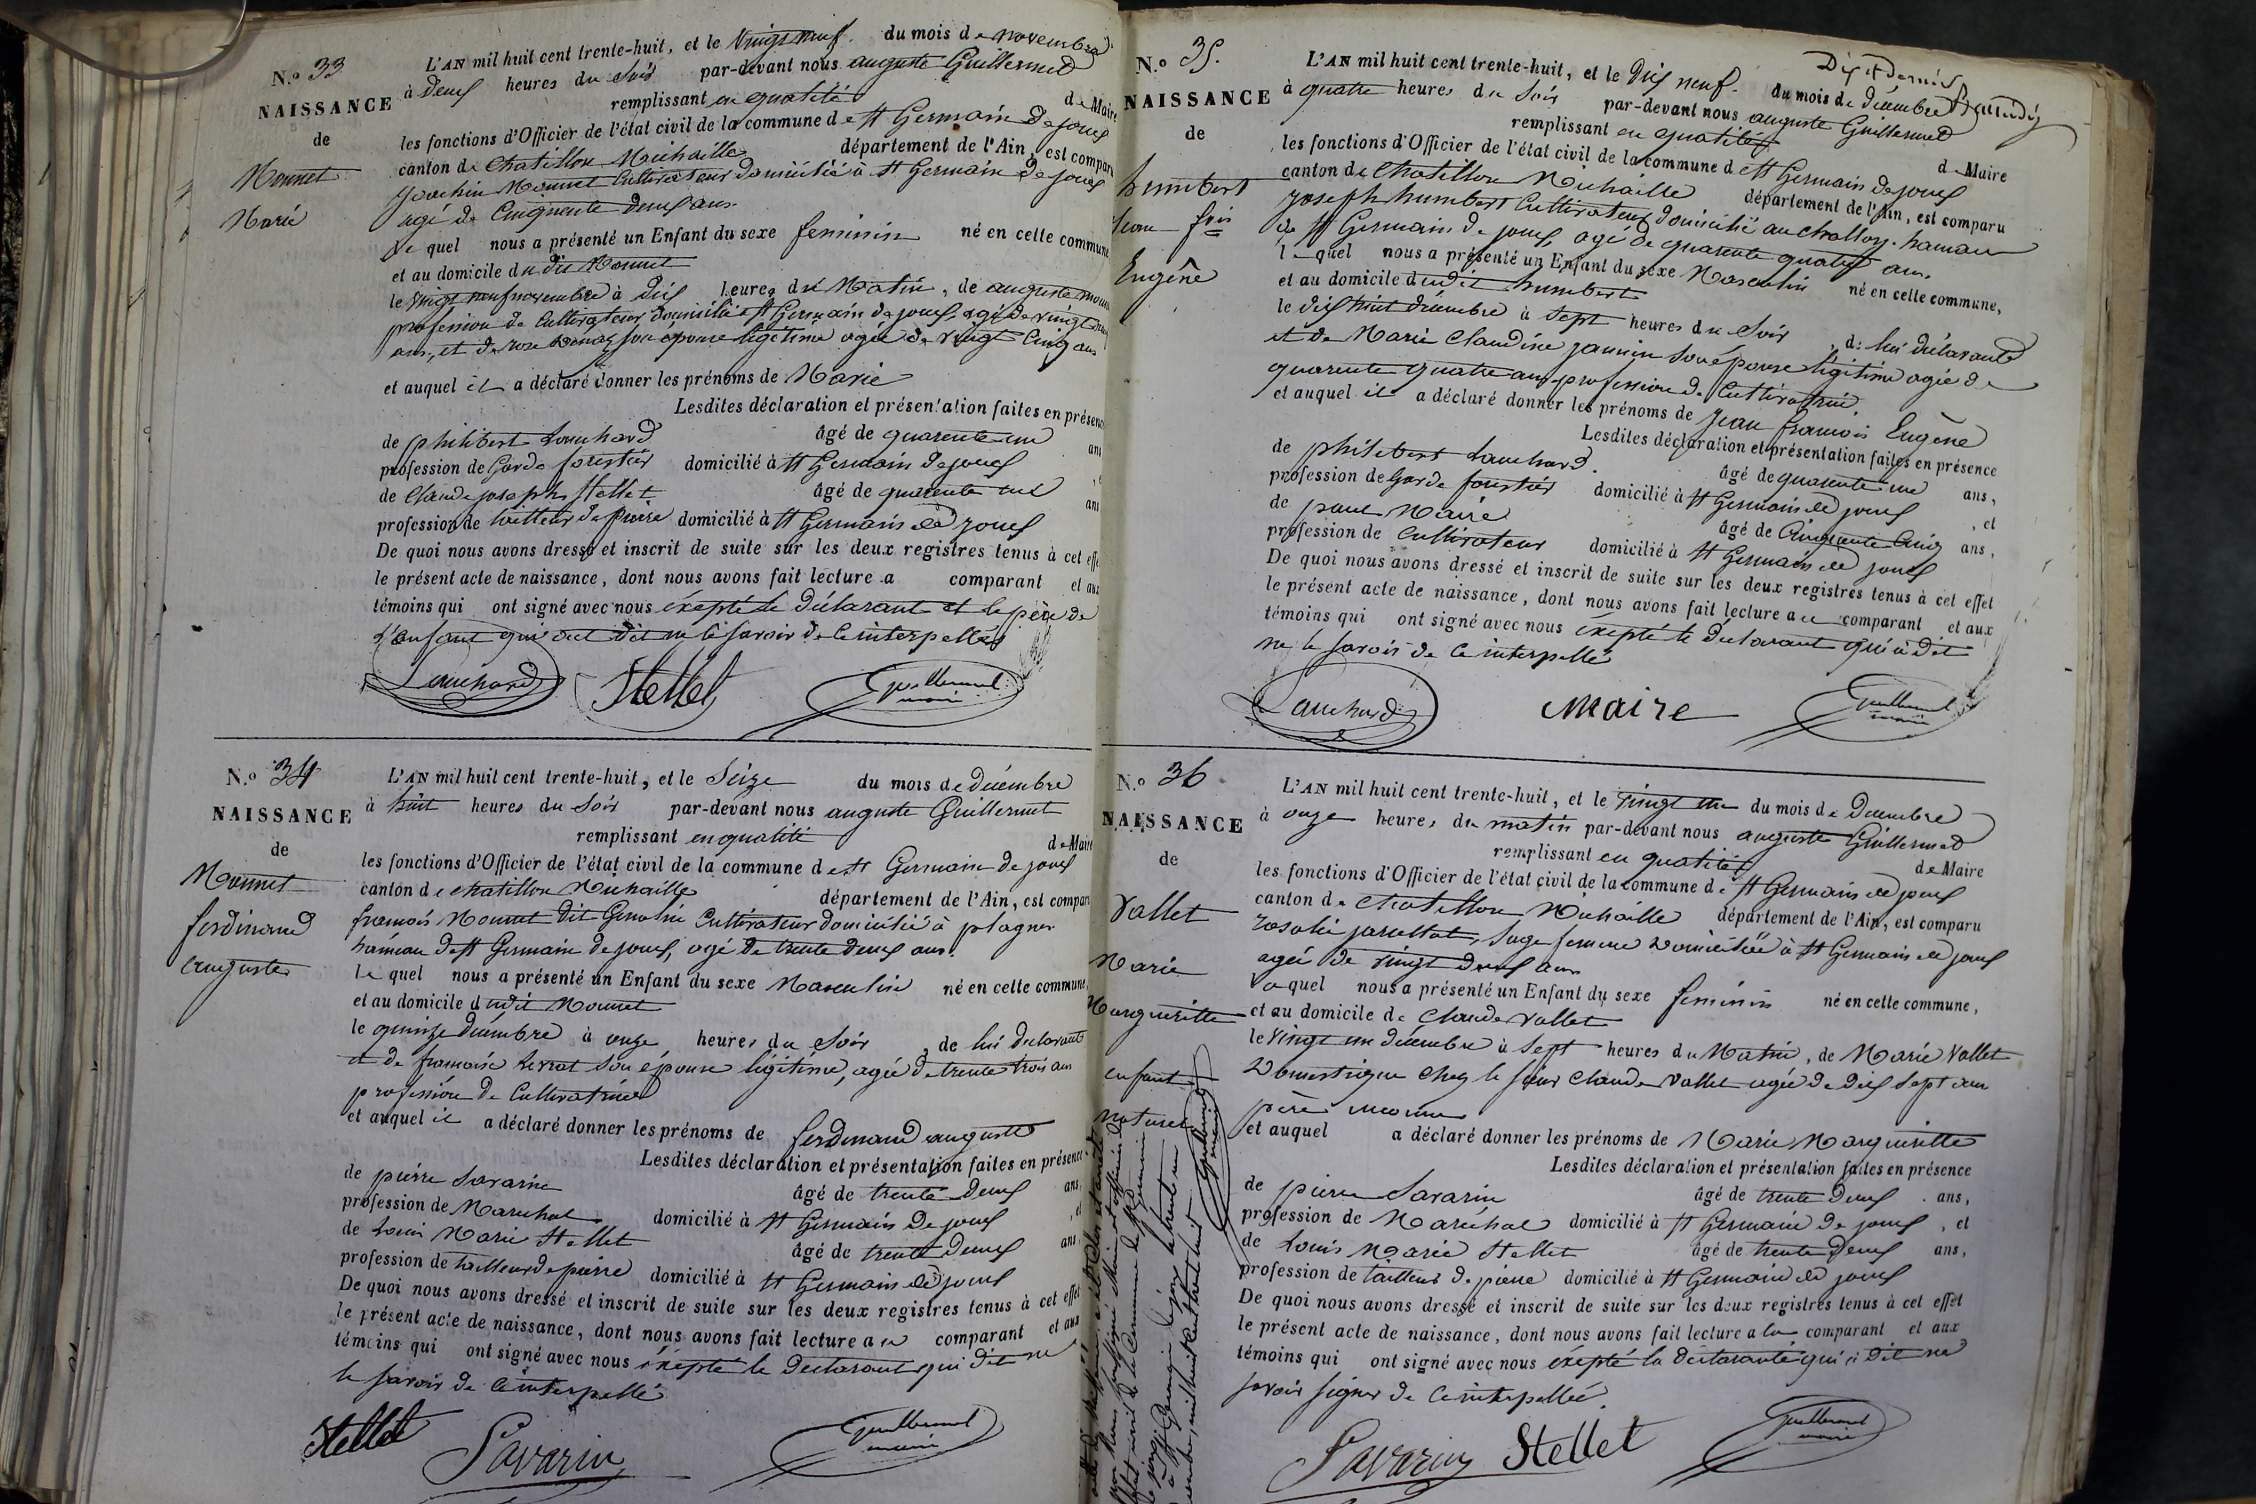 N.o 33
NAISSANCE
de
Monnet
Marie
L'AN mil huit cent trente-huit, et le vingt neuf du mois de novembre
à deux heures du soir par-devant nous auguste Guillermet
remplissant en qualité de Maire
les fonctions d'Officier de l'état civil de la commune de St Germain de joux
canton de Chatillon Michaille département de l'Ain, est comparu
joachim Monnet Cultivateur domicilié à St Germain de joux
agé de Cinquente deux ans
le quel nous a présenté un Enfant du sexe feminin né en cette commune
et au domicile du dit Monnet
le vingt neuf novembre à dix heures du Matin, de auguste monnet
profession de Cultivateur domicilié à St Germain de joux, agé de vingt
ans, et de rose son épouse légitime agée de vingt Cinq ans
et auquel il a déclaré donner les prénoms de Marie
Lesdites déclaration et présentation faites en présence
de philibert Louchard âgé de quarente un ans
profession de Garde forestier domicilié à St Germain de joux
de Claude joseph Stellet âgé de quarente ans
profession de tailleur de pierre domicilié à St Germain de joux
De quoi nous avons dressé et inscrit de suite sur les deux registres tenus à cet effet
le présent acte de naissance, dont nous avons fait lecture a comparant et aux
témoins qui ont signé avec nous éxepté le déclarant et le père de
l'enfant qui ont dit ne le savoir de ce interpellés
Louchard Stellet Guillermet maire
N.o 34
NAISSANCE
de
Monnet
ferdinand
auguste
L'AN mil huit cent trente-huit, et le Seize du mois de décembre
à huit heures du soir par-devant nous auguste Guillermet
remplissant en qualité de Maire
les fonctions d'Officier de l'état civil de la commune de St Germain de joux
canton de chatillon Michaille département de l'Ain, est comparu
francois Monnet dit Cultivateur domicilié à plagnes
hameau de St Germain de joux, agé de trente deux ans.
le quel nous a présenté un Enfant du sexe Masculin né en cette commune,
et au domicile du dit Monnet
le quinze décembre à onze heures du soir, de lui déclarant
et de francoise son épouse légitime, agée de trente trois ans
profession de Cultivatrice
et auquel il a déclaré donner les prénoms de ferdinand auguste
Lesdites déclaration et présentation faites en présence
de pierre Savarin âgé de trente deux ans,
profession de Maréchal domicilié à St Germain de joux, et
de Louis Marie Stellet âgé de trente deux ans,
profession de tailleur de pierre domicilié à St Germain de joux
De quoi nous avons dressé et inscrit de suite sur les deux registres tenus à cet effet
le présent acte de naissance, dont nous avons fait lecture au comparant et aux
témoins qui ont signé avec nous éxepté le déclarant qui dit ne
le savoir de ce interpellé
Stellet Savarin Guillermet maire
N.o 35.
NAISSANCE
de
humbert
jean fois
Eugêne
L'AN mil huit cent trente-huit, et le dix neuf du mois de décembre
à quatre heures du soir par-devant nous auguste Guillermet
remplissant en qualité de Maire
les fonctions d'Officier de l'état civil de la commune de St Germain de joux
canton de Chatillon Michaille département de l'Ain, est comparu
joseph humbert Cultivateur domicilié au hameau
de St Germain de joux, agé de quarente quatre ans.
le quel nous a présenté un Enfant du sexe Masculin né en cette commune,
et au domicile du dit humbert
le dix huit décembre à sept heures du soir, de lui déclarant
et de Marie Claudine jannin son épouse légitime agée de
quarente quatre ans profession de Cultivatrice.
et auquel il a déclaré donner les prénoms de jean francois Eugène
Lesdites déclaration et présentation faites en présence
de philibert Louchard. âgé de quarente un ans,
profession de Garde forestier domicilié à St Germain de joux, et
de paul Maire âgé de Cinquente Cinq ans,
profession de Cultivateur domicilié à St Germain de joux
De quoi nous avons dressé et inscrit de suite sur les deux registres tenus à cet effet
le présent acte de naissance, dont nous avons fait lecture au comparant et aux
témoins qui ont signé avec nous éxepté le déclarant qui à dit
ne le savoir de ce interpellé
Louchard Maire Guillermet maire
N.o 36
NAISSANCE
de
Vallet
Marie
Margueritte
enfant
naturel
L'AN mil huit cent trente-huit, et le vingt un du mois de Décembre
à onze heures du matin par-devant nous auguste Guillermet
remplissant en qualité de Maire
les fonctions d'Officier de l'état civil de la commune de St Germain de joux
canton de Chatillon Michaille département de l'Ain, est comparu
rosalie, Sage femme domiciliée à St Germain de joux
agée de vingt deux ans
la quel nous a présenté un Enfant du sexe feminin né en cette commune,
et au domicile de Claude Vallet
le vingt un décembre à Sept heures du Matin, de Marie Vallet
domestique chez le sieur Claude Vallet agée de dix sept ans
père inconnu
et auquel a déclaré donner les prénoms de Marie Margueritte
Lesdites déclaration et présentation faites en présence
de pierre Savarin âgé de trente deux ans,
profession de Maréchal domicilié à St Germain de joux, et
de Louis Marie Stellet âgé de trente deux ans,
profession de tailleur de pierre domicilié à St Germain de joux
De quoi nous avons dressé et inscrit de suite sur les deux registres tenus à cet effet
le présent acte de naissance, dont nous avons fait lecture a la comparant et aux
témoins qui ont signé avec nous éxepté la déclarante qui à dit ne
savoir signer de ce interpellée.
Savarin Stellet Guillermet maire